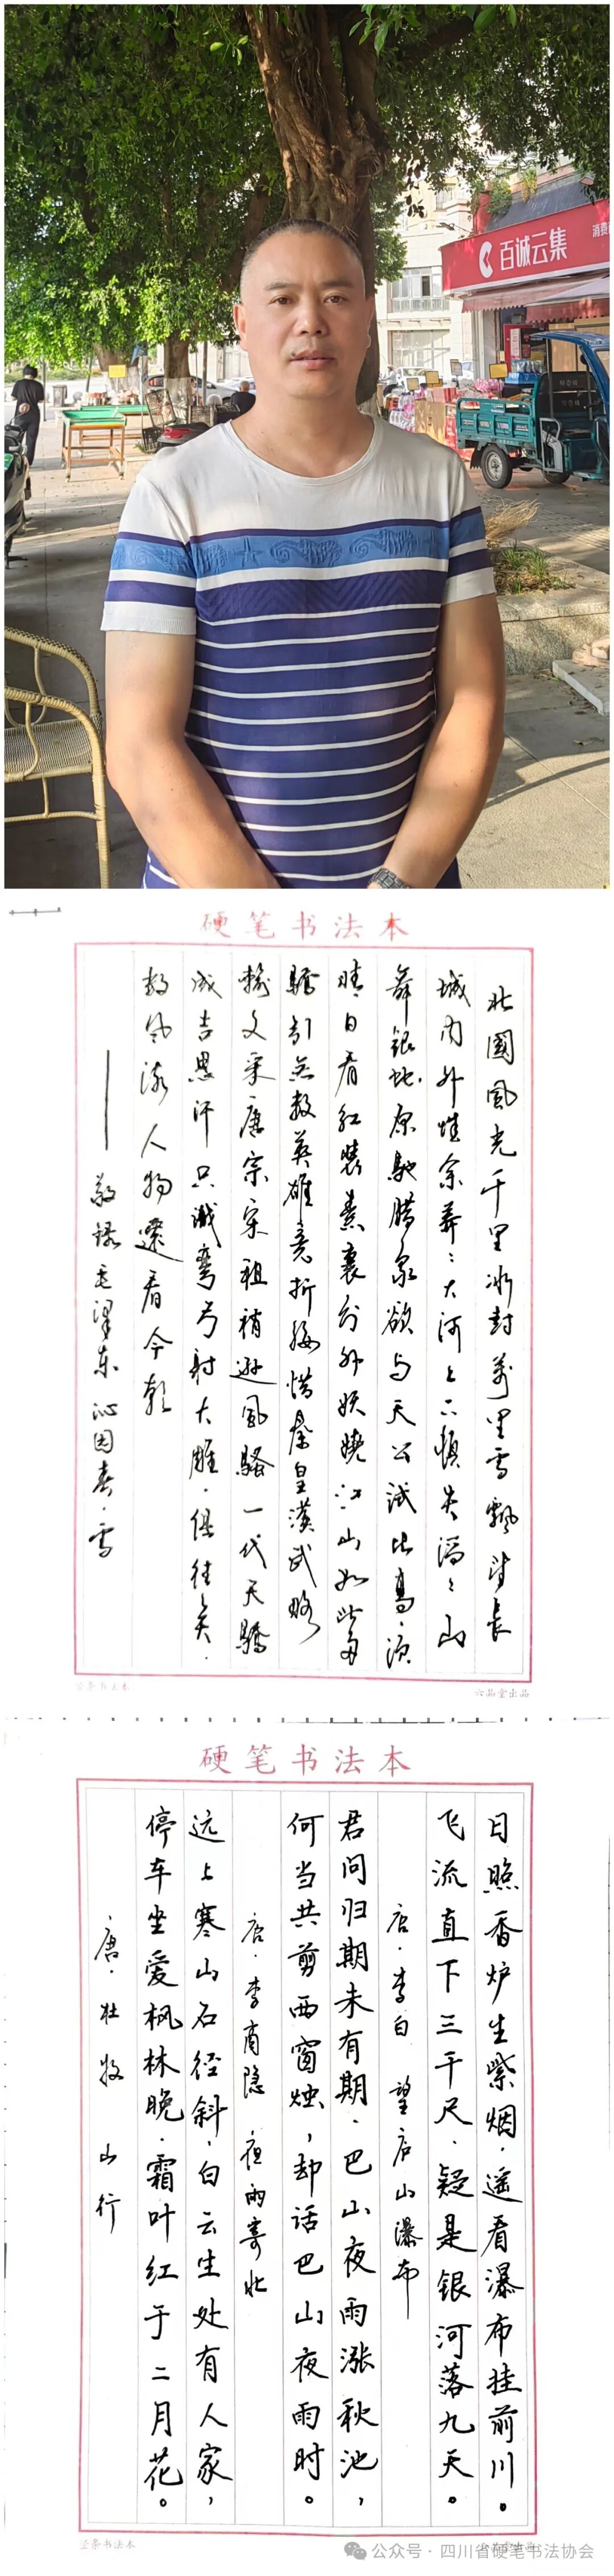 百诚云集
消费
硬笔书法本
北國風光千里冰封萬里雪飄望長
城内外惟余莽〻大河上下頓失滔〻山
舞銀蛇原馳腊象欲与天公試比高·须
晴日看红装素裹分外妖娆江山如此多
驕引無数英雄竟折腰惜秦皇漢武略
輸文采唐宗宋祖稍遜風騷一代天驕
成吉思汗只識彎弓射大雕·俱往矣·
数风流人物還看今朝
——敬録毛澤东沁园春·雪
竖条书法本
六品堂出品
硬笔书法本
日照香炉生紫烟·遥看瀑布挂前川。
飞流直下三千尺·疑是银河落九天。
唐·李白 望庐山瀑布
君问归期未有期·巴山夜雨涨秋池，
何当共剪西窗烛，却话巴山夜雨时。
唐·李商隐 夜雨寄北
远上寒山石径斜·白云生处有人家，
停车坐爱枫林晚·霜叶红于二月花。
唐·杜牧 山行
竖条书法本
公众号·四川省硬笔书法协会